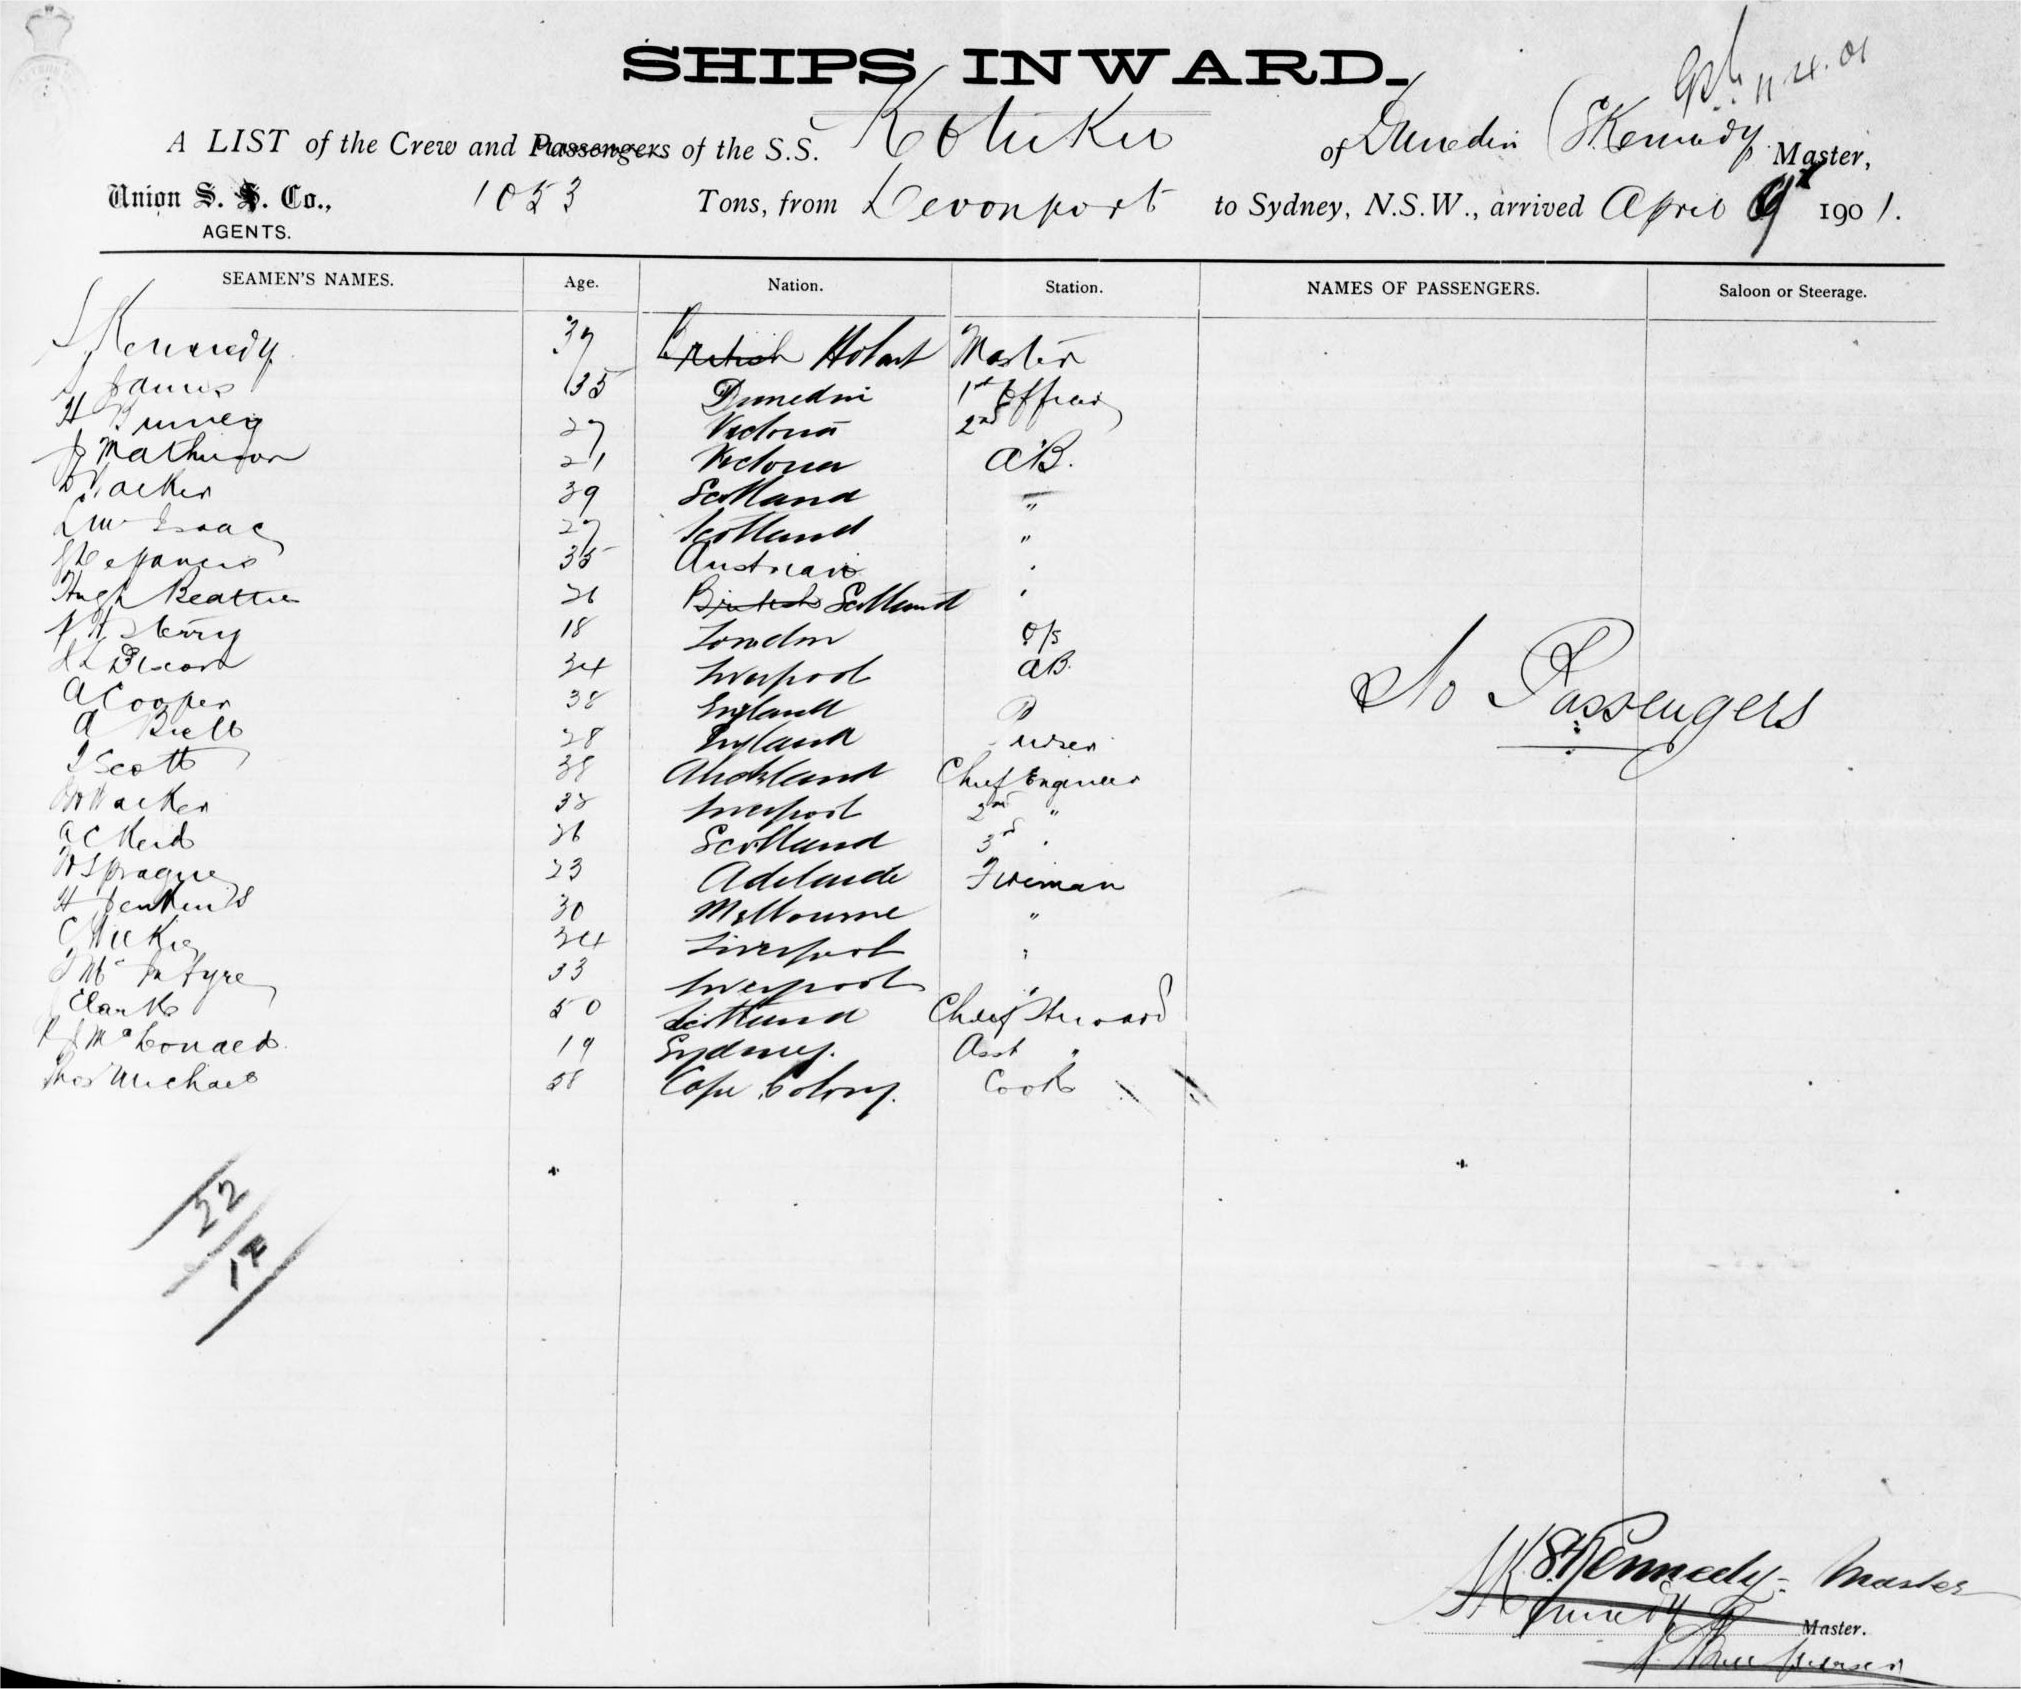 SHIPS INWARD.
11.4.01
A LIST of the Crew and Passengers of the S.S. Kotuku of Dunedin S Kennedy Master,
Union S. S. Co., 1053 Tons, from Devonport to Sydney, N.S.W., arrived April 9 1901.
AGENTS.
SEAMEN'S NAMES. Age. Nation. Station. NAMES OF PASSENGERS. Saloon or Steerage.
S Kennedy 37 British Hobart Master
James 35 Dunedin 1st Officer
H 27 Victoria 2nd
J Mathieson 21 Victoria AB.
39 Scotland "
L McIsaac 27 Scotland "
35 Austrian
Hugh Beattie 26 British Scotland
Sterry 18 London O/S
Dixon 34 Liverpool AB.
A Cooper 38 England
A Bull 28 England Purser
J Scott 38 Auckland Chief Engineer
38 Liverpool 2nd "
A C Reid 26 Scotland 3rd
W Sprague 23 Adelaide Fireman
H Jenkins 30 Melbourne "
C Wilkie 34 Liverpool "
McIntyre 33 Liverpool "
Clark 50 Scotland Chief Steward
McDonald 19 Sydney. Asst "
Thos Michael 58 Cape Colony. Cook
No Passengers
22
17
S. Kennedy Master
Kennedy Master.
Purser